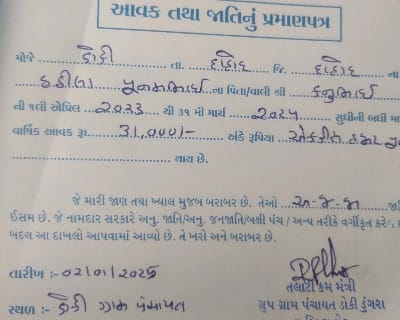 આવક તથા જાતિનું પ્રમાણપત્ર
મોજે ડોકી તા. દાહોદ જિ. દાહોદ ના
હઠીલા પુનમભાઈ ના પિતા/વાલી શ્રી કનુભાઈ
ની ૧લી એપ્રિલ ૨૦૨૩ થી ૩૧ મી માર્ચ ૨૦૨૫ સુધીની બધી મ
વાર્ષિક આવક રૂા. 31,000/- અંકે રૂપિયા એકત્રીસ હજાર પુ
થાય છે.
જે મારી જાણ તથા ખ્યાલ મુજબ બરાબર છે. તેઓ અ.જ.જા જાતિ
ઈસમ છે. જે નામદાર સરકારે અનુ. જાતિ/અનુ. જનજાતિ/બક્ષી પંચ / અન્ય તરીકે વર્ગીકૃત કરે
બદલ આ દાખલો આપવામાં આવ્યો છે. તે ખરો અને બરાબર છે.
તારીખ :- 02/01/2025
તલાટી કમ મંત્રી
સ્થળ :- ડોકી ગ્રામ પંચાયત
ગ્રુપ ગ્રામ પંચાયત ડોકી ડુંગરા